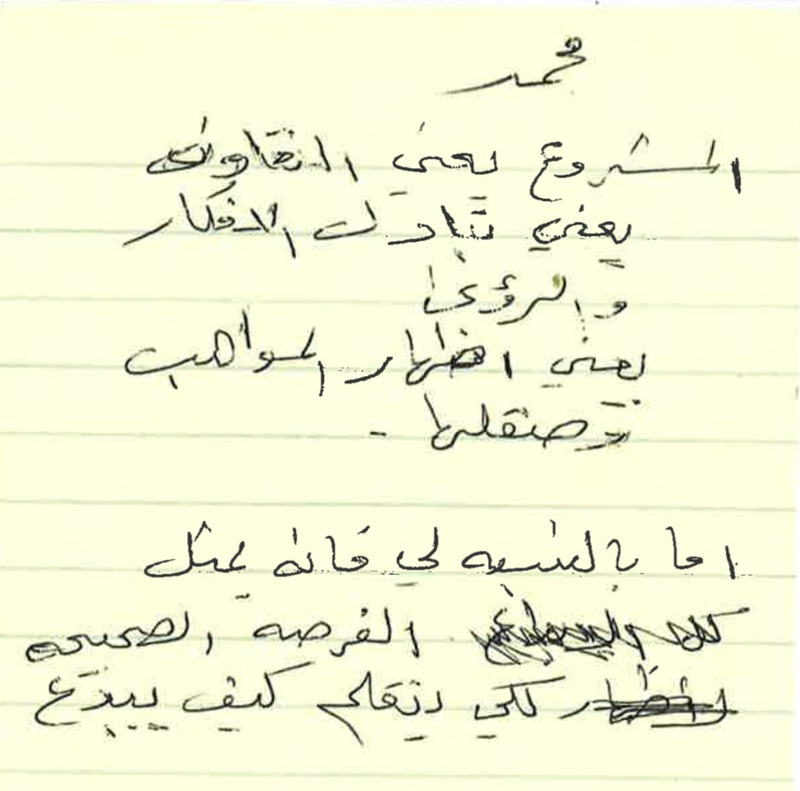 محمد
المشروع يعني التعاون
يعني تبادل الافكار
والرؤى
يعني اظهار المواهب
وصقلها .
اما بالنسبه لي فانه يمثل
الفرصه الصحيحه
لكي نتعلم كيف نبدع